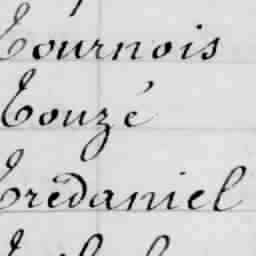 Tournois
Touzé
Trédaniel